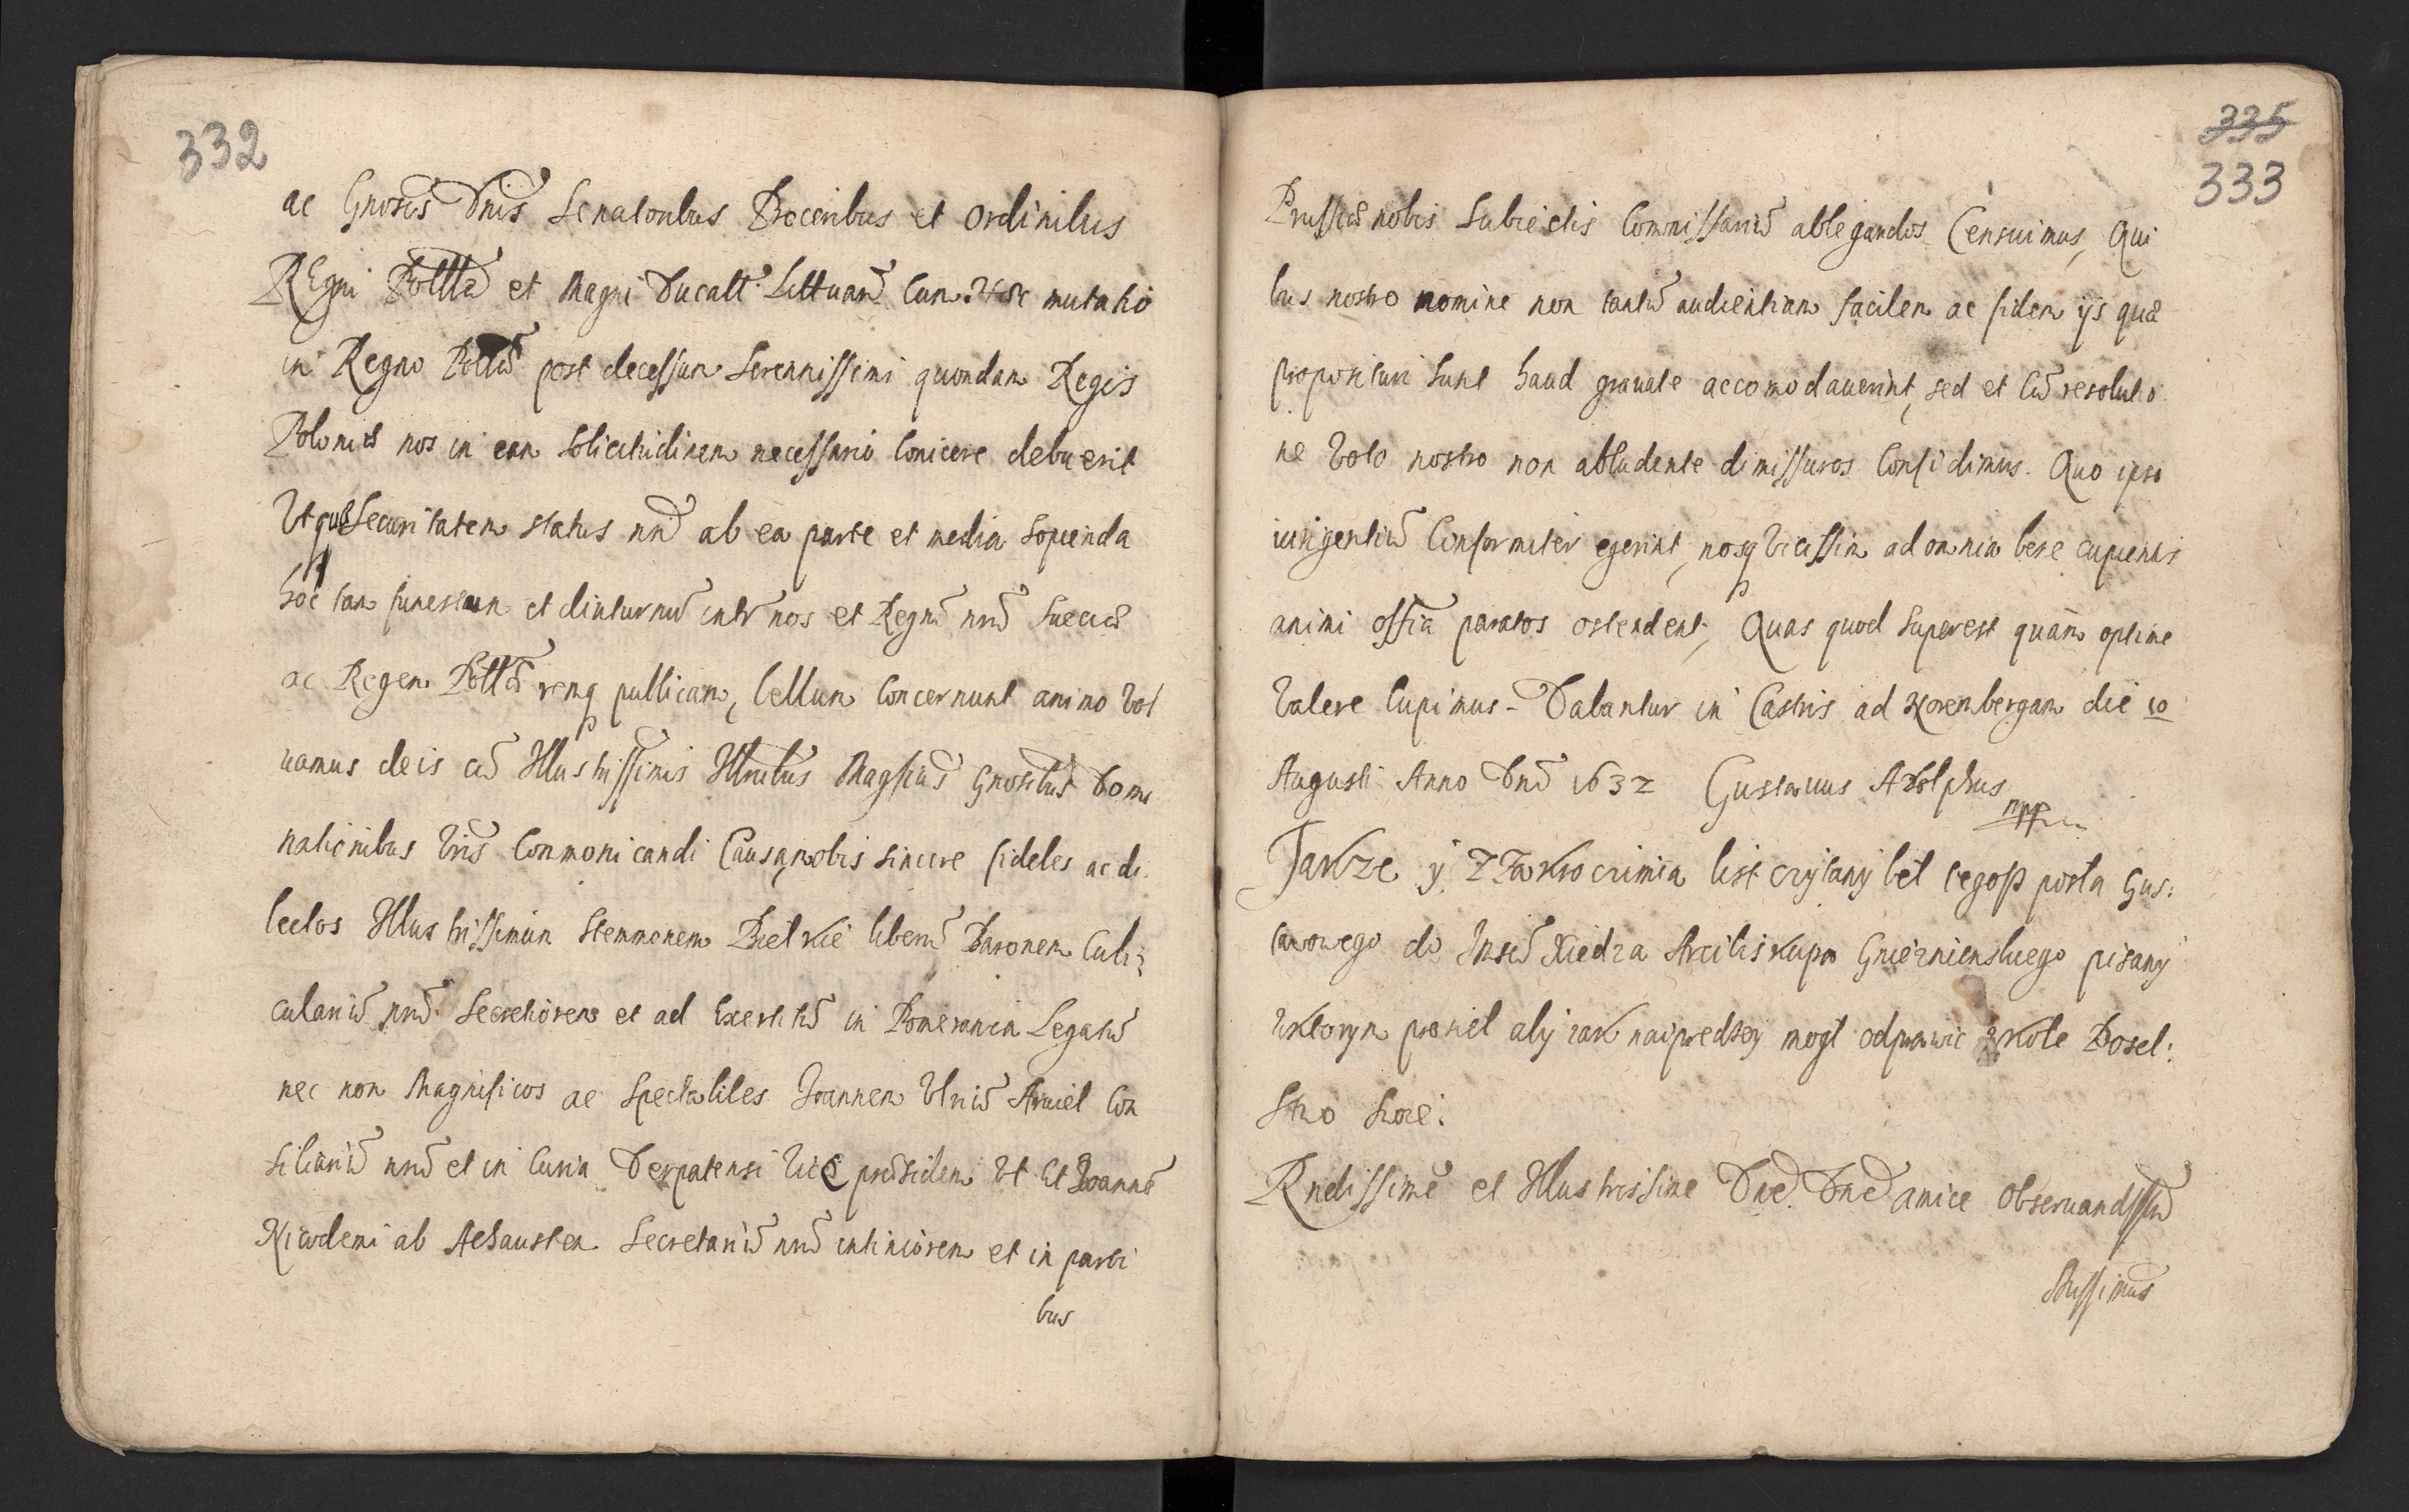 332
ac Gnosis Dnis Senatoribus Proceribus et ordinibus
REgni Polllae et Magni Ducatt. Littuan Cum mutatio
in Regno Pollae post decessum Serennissimi quondam Regis
Poloniae nos in eam solicitudinem necessario Conicere debuerit
Vt quae Securitatem status nri ab ea parte et media sopienda
hoc tam funestum et diuturnu intr nos et Regnu nru Sueciae
ac Regem Pollae remq publicam, bellum Concernunt animo vol
uamus de is cu Illustrissimis Illribus Magficis Gnosibus Domi
nationibus Vris Conmonicandi Causa, nobis sincere fideles ac di
lectos Illustrissimum Stemmonem Bielkie liberu Baronem Cubi:
culariu nru Secretiorem et ad Exercitu in Pomerania Legatu
nec non Magnificos ac Spectabiles Joannem Vlriu Con
siliariu nru et in Curia Derpatensi Vice praesidem Vt Et Joanne
Nicodemi ab Aehausten Secretariu nru intimiorem et in parti
bus
335
333
Prussiae nobis Subiectis Commissariu ablegandos Censuimus, Qui
bus nostro nomine non tantu audientiam facilem ac fidem ijs quae
proposituri sunt haud grauate accomodauerint, sed et Cu resolutio
ne voto nostro non abludente dimissuros Confidimus. Quo ipso
iurigentiu Conformiter egerint, nosq vicissim ad omnia bene cupientis
animi offia paratos ostendent, Quas quod Superest quam optime
Valere Cupimus - Dabantur in Castris ad Norembergam die 10
Augusti Anno Dni 1632 Gustauus Adolphus
mpp
Takze y list czytany bel tegoss posla Gus:
tawowego do Xiedza Arcibiskupa Gnieznienskiego pisany
wktorym prosiel aby iak naipredzey mogl odprawic wkole Posel:
stwo swoie:
Rndissime et Illustrissime Dne Dne amice obseruandssi